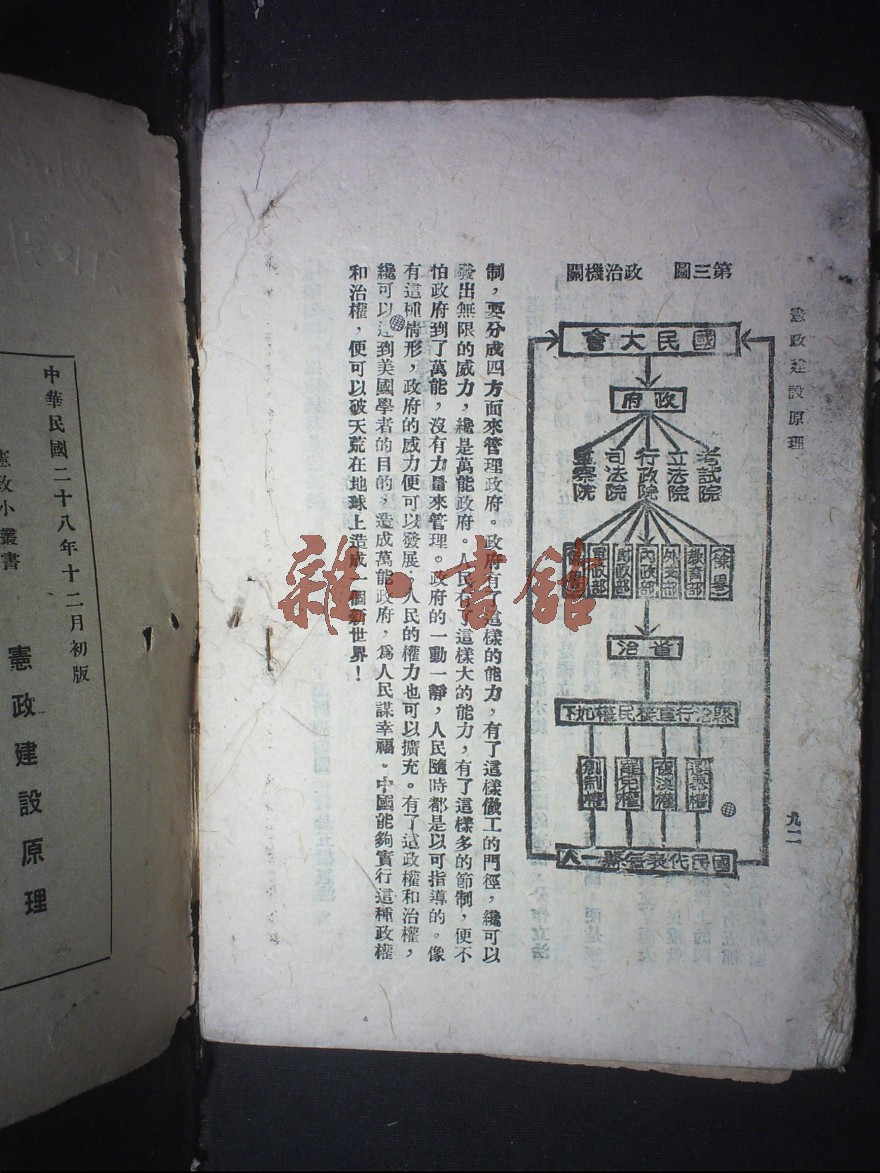 憲政建設原理
九二
第三圖 政治機關
國民大會
政府
考試院
立法院
行政院
司法院
監察院
教育部
外交部
內政部
財政部
軍政部
省治
縣治行直接民權如下
選舉權
複決權
罷免權
創制權
國民代表每縣一人
制，要分成四方面來管理政府。政府有了這樣的能力，有了這樣做工的門徑，纔可以
發出無限的威力，纔是萬能政府。人民有了這樣大的能力，有了這樣多的節制，便不
怕政府到了萬能，沒有力量來管理。政府的一動一靜，人民隨時都是以可指導的。像
有這種情形，政府的威力便可以發展，人民的權力也可以擴充。有了這政權和治權，
纔可以達到美國學者的目的，造成萬能政府，為人民謀幸福。中國能夠實行這種政權
和治權，便可以破天荒在地球上造成一個新世界！
中華民國二十八年十二月初版
憲政小叢書
憲政建設原理
雜·書館